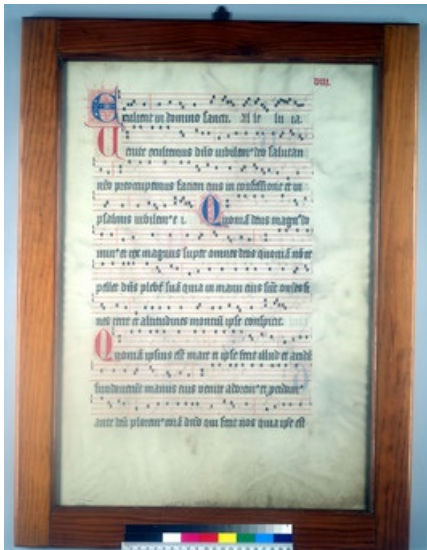 VIII.
Exultent in domino sancti. Al le lu ia.
Venite exultemus dño iubilem⁹ deo salutari
nr̃o preocupemus faciem eius in confessione et in
psalmis iubilem⁹ e i. Quoniã deus magn⁹ do
min⁹ et rex magnus super omnes deos quoniã nõ re
pellet dñs plebẽ suã quia in manu eius sũt omẽs fi
nes terre et altitudines montiũ ipse conspicit.
Quoniã ipsius est mare et ipse fecit illud et aridã
fundauerũt manus eius venite adorem⁹ et
ante deũ plorem⁹ corã dño qui fecit nos quia ipse est